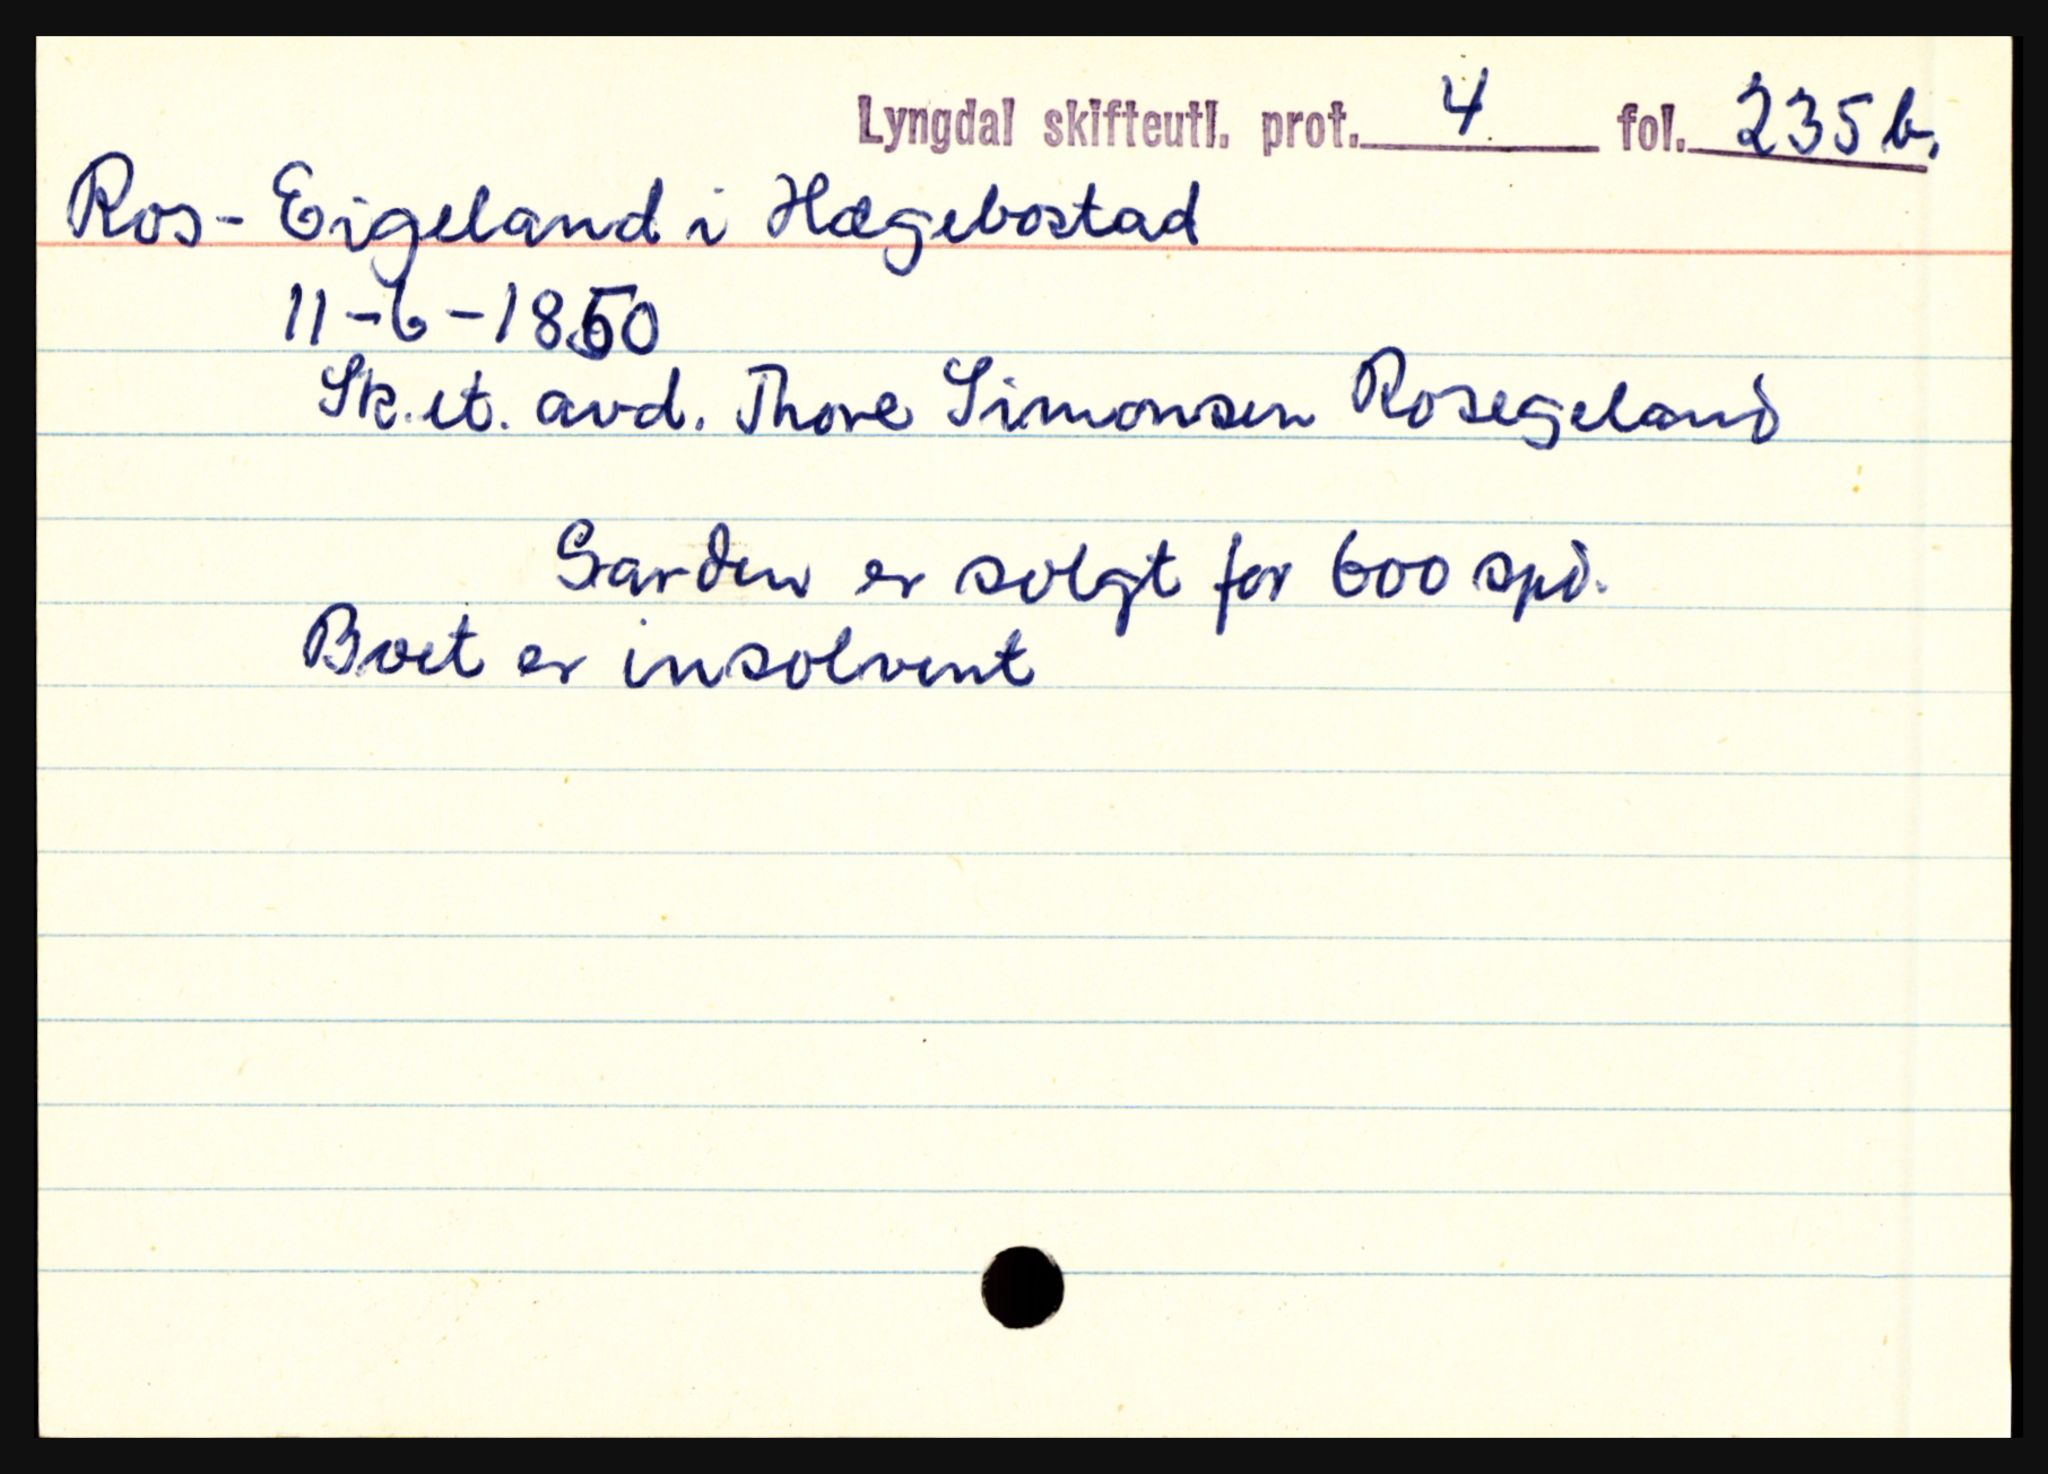 Lyngdal skifteutl. prot. 4 fol. 235 b.
Ros-Eigeland i Hægebostad
11-6-1850
Sk. et. avd. Thore Simonsen Rosegeland
Garden er solgt for 600 spd.
Boet er insolvent